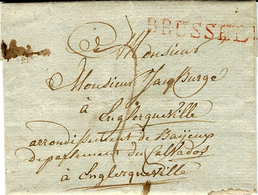 BRUSSEL
à Monsieur
Monsieur Jacq Burge
à Englerqueville
arrondissement de Baijeux
departement du Calvados
à Englerqueville